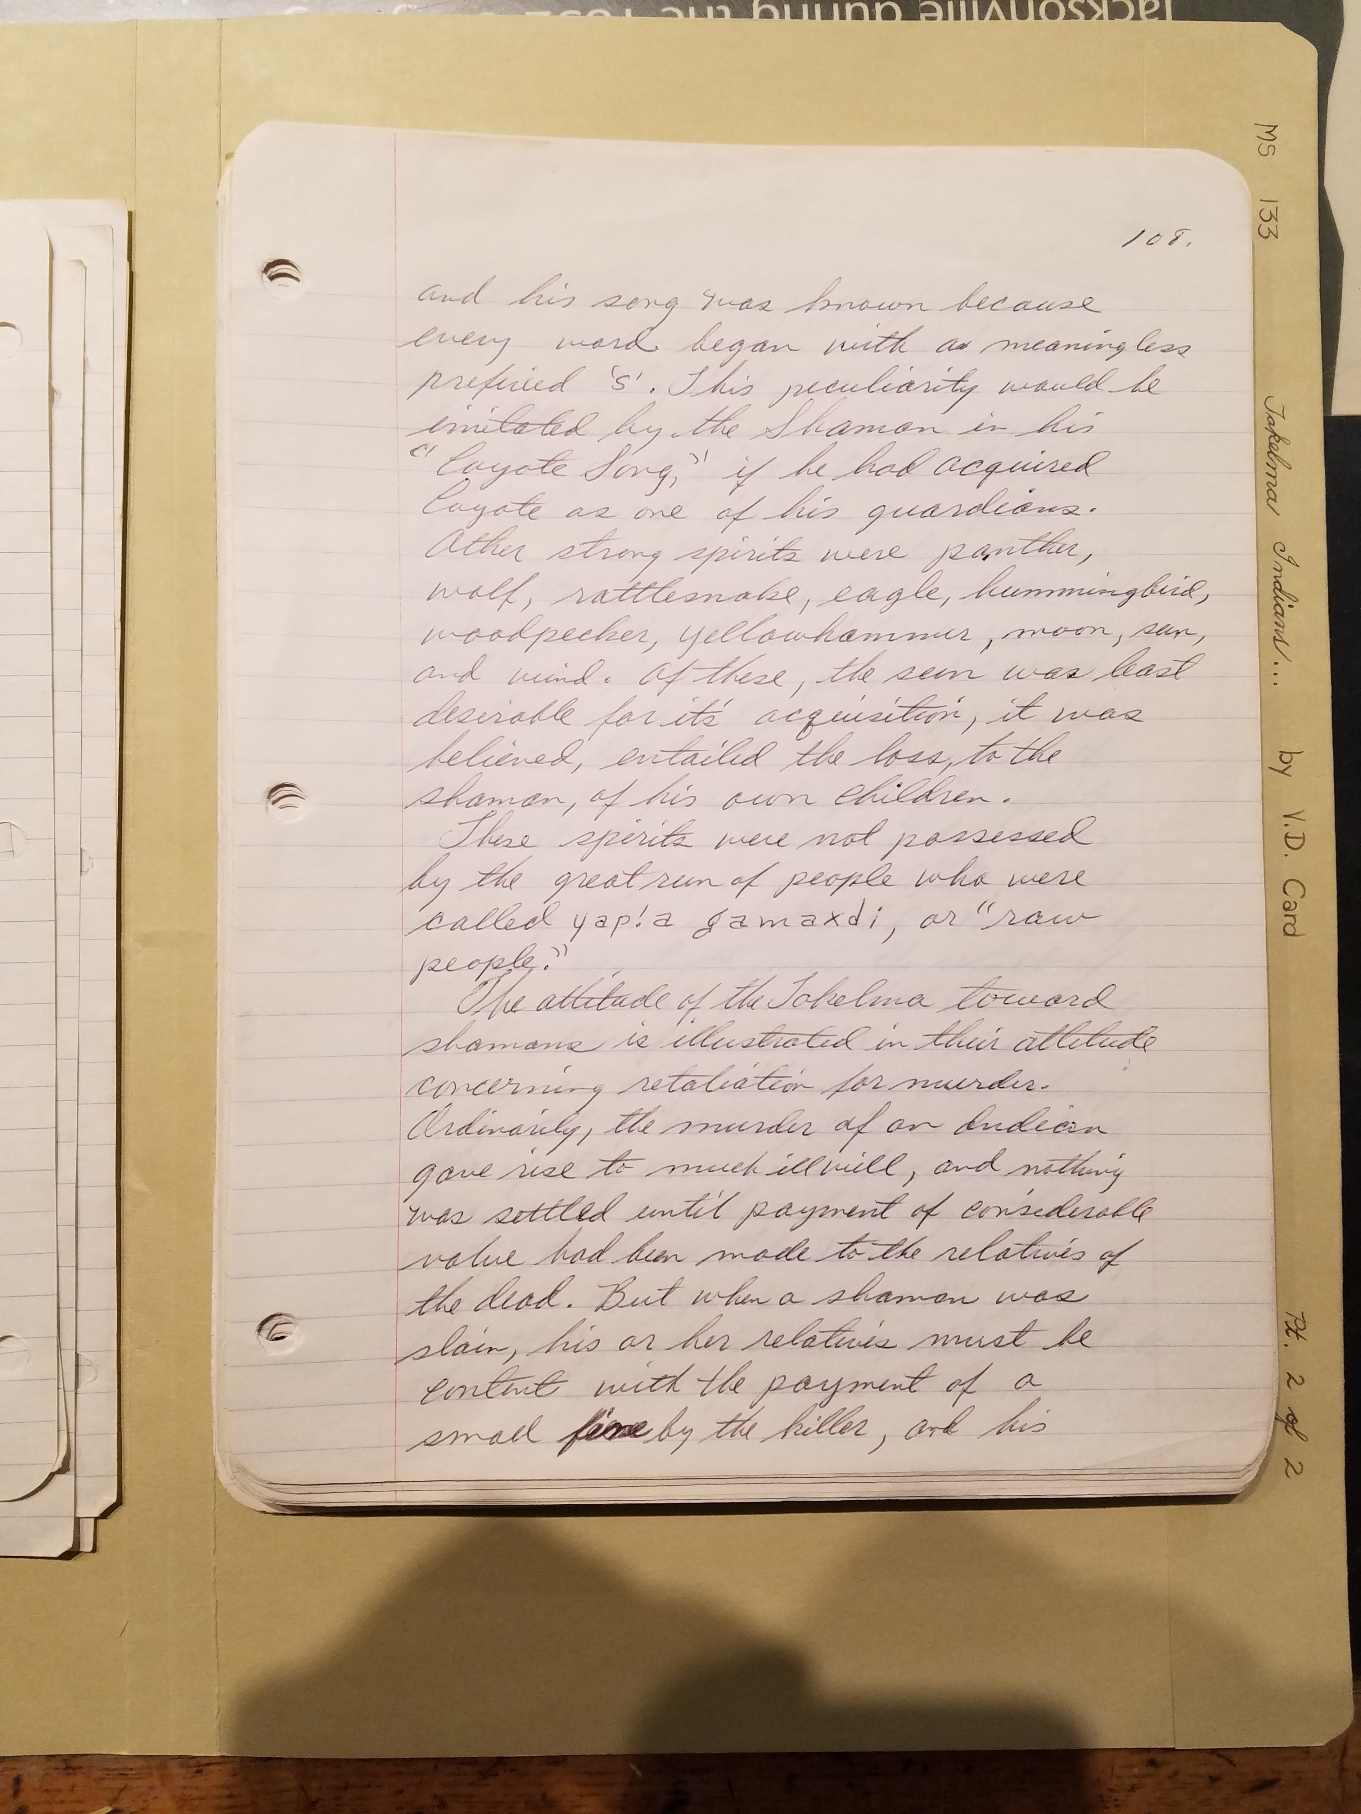 Jacksonville during the 1852
MS 133 Takelma Indians... by V.D. Card Pt. 2 of 2
108.
and his song was known because
every word began with a meaningless
prefixed 's'. This peculiarity would be
imitated by the Shaman in his
"Coyote Song," if he had acquired
Coyote as one of his guardians.
Other strong spirits were panther,
wolf, rattlesnake, eagle, hummingbird,
woodpecker, yellowhammer, moon, sun,
and wind. Of these, the sun was least
desirable for it's acquisition, it was
believed, entailed the loss, to the
shaman, of his own children.
These spirits were not possessed
by the great run of people who were
called yap!a gamaxdi, or "raw
people."
The attitude of the Takelma toward
shamans is illustrated in their attitude
concerning retaliation for murder.
Ordinarily, the murder of an Indian
gave rise to much illwill, and nothing
was settled until payment of considerable
value had been made to the relatives of
the dead. But when a shaman was
slain, his or her relatives must be
content with the payment of a
small fine by the killer, and his